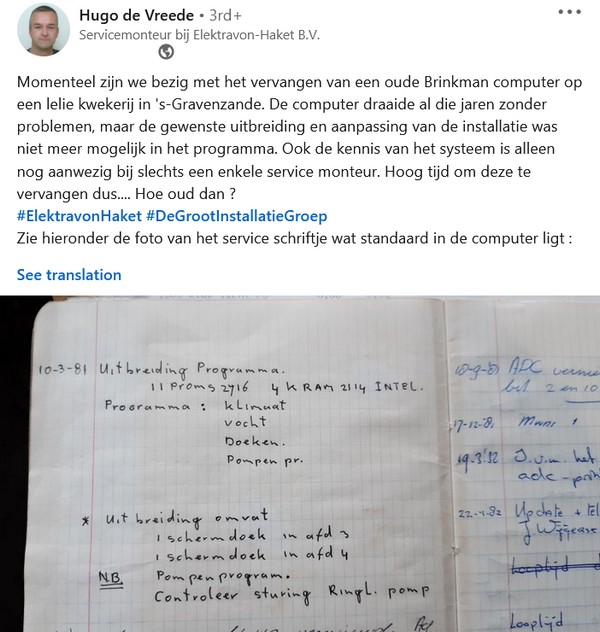 Hugo de Vreede • 3rd+
Servicemonteur bij Elektravon-Haket B.V.
Momenteel zijn we bezig met het vervangen van een oude Brinkman computer op
een lelie kwekerij in 's-Gravenzande. De computer draaide al die jaren zonder
problemen, maar de gewenste uitbreiding en aanpassing van de installatie was
niet meer mogelijk in het programma. Ook de kennis van het systeem is alleen
nog aanwezig bij slechts een enkele service monteur. Hoog tijd om deze te
vervangen dus.... Hoe oud dan ?
#ElektravonHaket #DeGrootInstallatieGroep
Zie hieronder de foto van het service schriftje wat standaard in de computer ligt :
See translation
10-3-81 Uitbreiding Programma.
11 Proms 2716 4 K RAM 2114 INTEL.
Programma : klimaat
vocht
Doeken.
Pompen pr.
* Uitbreiding omvat
1 schermdoek in afd 3
1 schermdoek in afd 4
N.B. Pompenprogram.
Controleer sturing Ringl. pomp
ADC
bet 2 en 10
17-12-81
19-3-'82 I.v.m. het
adc-prin
22-4-82 Update + tel
Looptijd
Looptijd